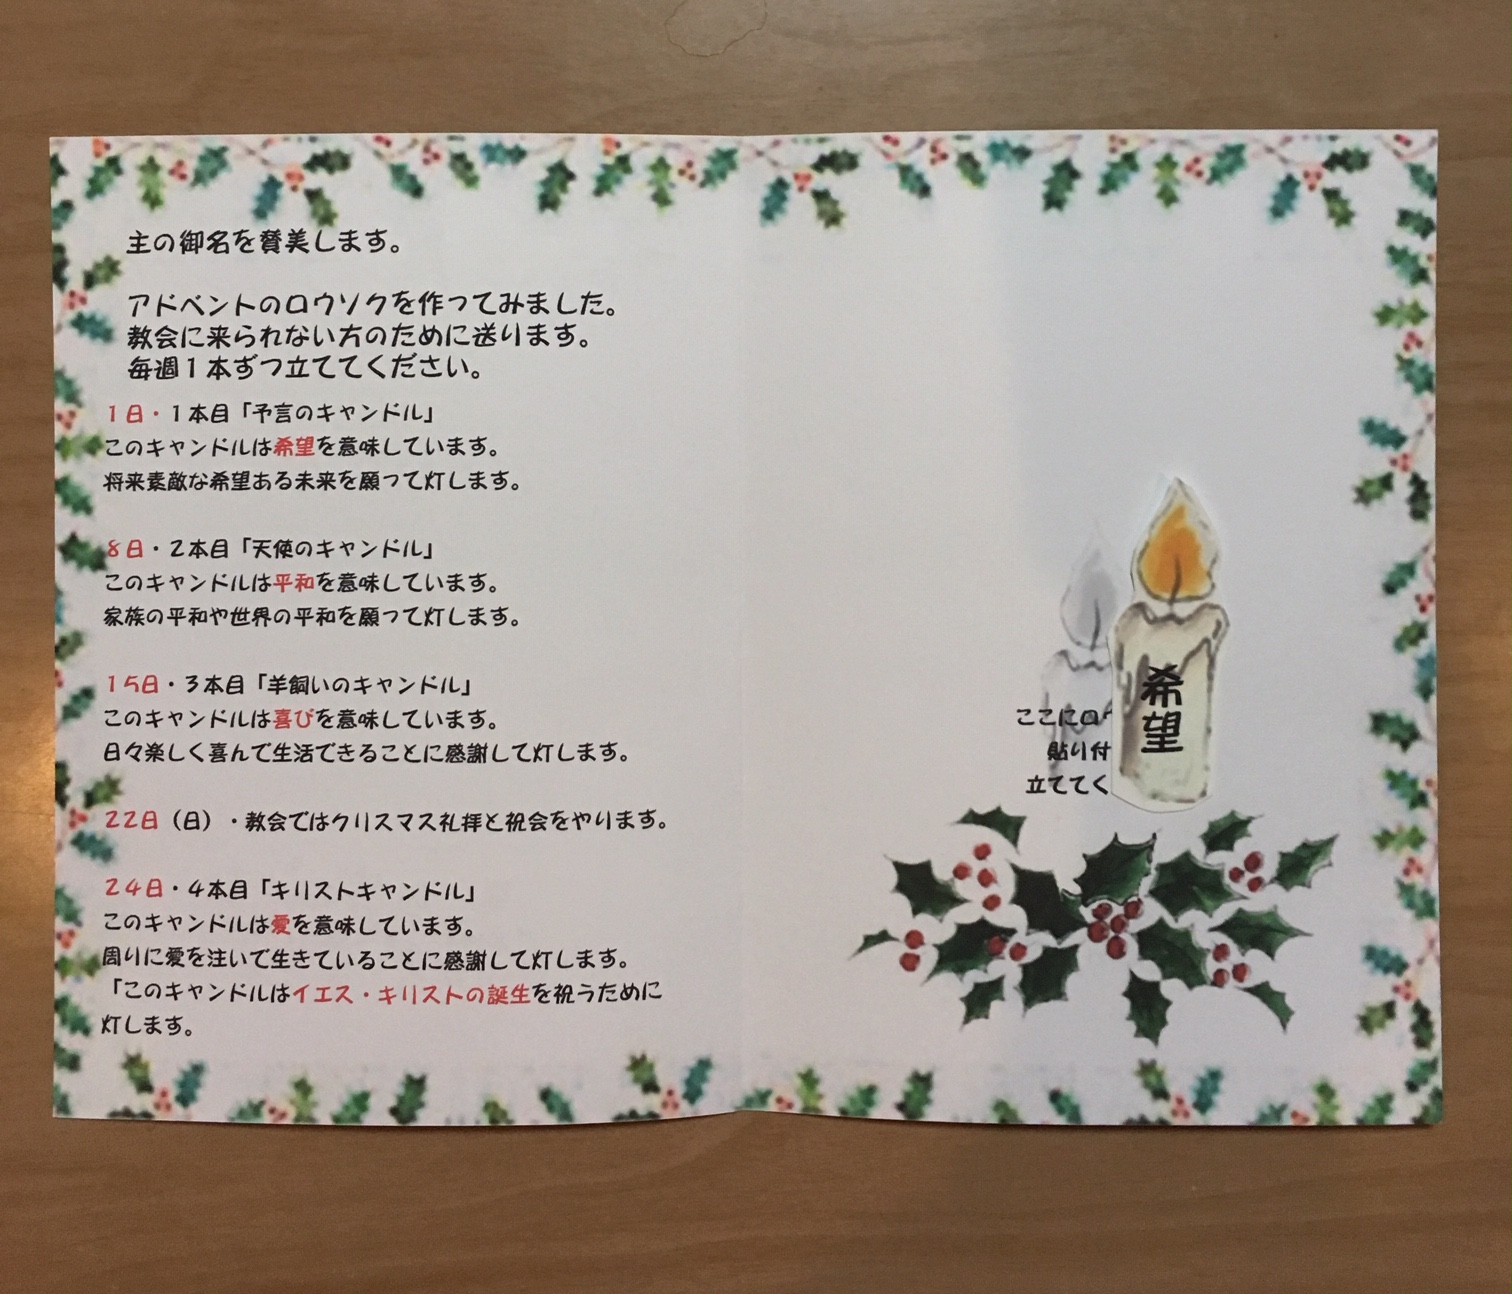 主の御名を賛美します。
アドベントのロウソクを作ってみました。
教会に来られない方のために送ります。
毎週１本ずつ立ててください。
１日・１本目「予言のキャンドル」
このキャンドルは希望を意味しています。
将来素敵な希望ある未来を願って灯します。
８日・２本目「天使のキャンドル」
このキャンドルは平和を意味しています。
家族の平和や世界の平和を願って灯します。
１５日・３本目「羊飼いのキャンドル」
このキャンドルは喜びを意味しています。
日々楽しく喜んで生活できることに感謝して灯します。
２２日（日）・教会ではクリスマス礼拝と祝会をやります。
２４日・４本目「キリストキャンドル」
このキャンドルは愛を意味しています。
周りに愛を注いで生きていることに感謝して灯します。
「このキャンドルはイエス・キリストの誕生を祝うために
灯します。
希望
ここにロ
貼り付
立ててく